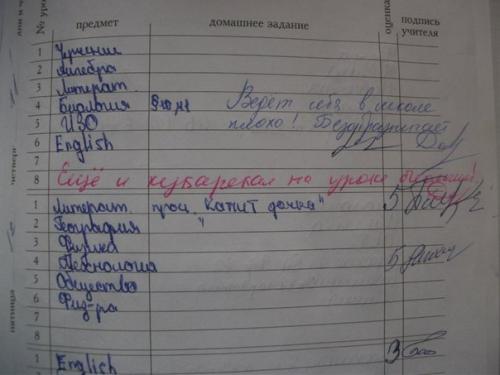 № уро
предмет
домашнее задание
оценка
подпись учителя
1 Черчение
2 Алгебра
3 Литерат.
4 Биология § 40,41 Ведет себя в школе
5 ИЗО плохо! Безобразничает
6 English
7
8 Ещё и кукарекал на уроке
четверг
1 Литерат. проч. "Капит дочка" 5
2 География "
3 Физика
4 Технология 5
5 Общество
6 Физ-ра
7
8
пятница
1 English 3